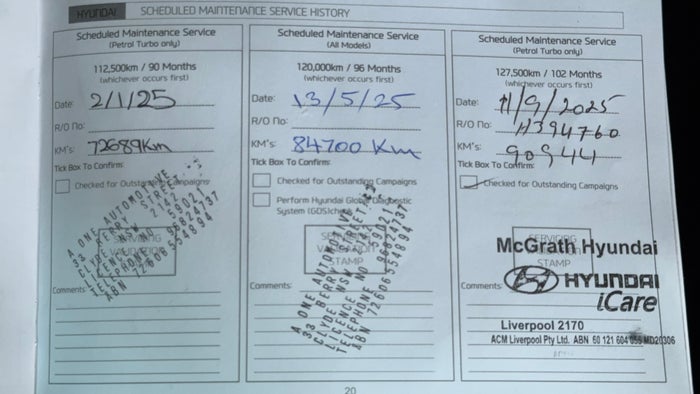 HYUNDAI SCHEDULED MAINTENANCE SERVICE HISTORY
Scheduled Maintenance Service
(Petrol Turbo only)
112,500km / 90 Months
(whichever occurs first)
Date: 2/1/25
R/O No:
KM's: 72689Km
Tick Box To Confirm:
Checked for Outstanding Campaigns
SERVICING
VALIDATION
STAMP
A ONE AUTOMOTIVE
33 BERRY STREET
CLYDE NSW 2142
LICENCE NO 59021
TELEPHONE 96824737
ABN 72606554894
Comments:
Scheduled Maintenance Service
(All Models)
120,000km / 96 Months
(whichever occurs first)
Date: 13/5/25
R/O No:
KM's: 84700 Km
Tick Box To Confirm:
Checked for Outstanding Campaigns
Perform Hyundai Global Diagnostic
System (GDS)check
SERVICING
VALIDATION
STAMP
A ONE AUTOMOTIVE
33 BERRY STREET
CLYDE NSW
LICENCE NO 59021
TELEPHONE 96824737
ABN 72606554894
Comments:
Scheduled Maintenance Service
(Petrol Turbo only)
127,500km / 102 Months
(whichever occurs first)
Date: 11/9/2025
R/O No: H394760
KM's: 90944
Tick Box To Confirm:
Checked for Outstanding Campaigns
SERVICING
McGrath Hyundai
HYUNDAI
iCare
Comments:
Liverpool 2170
ACM Liverpool Pty Ltd. ABN 60 121 604 MD20306
20